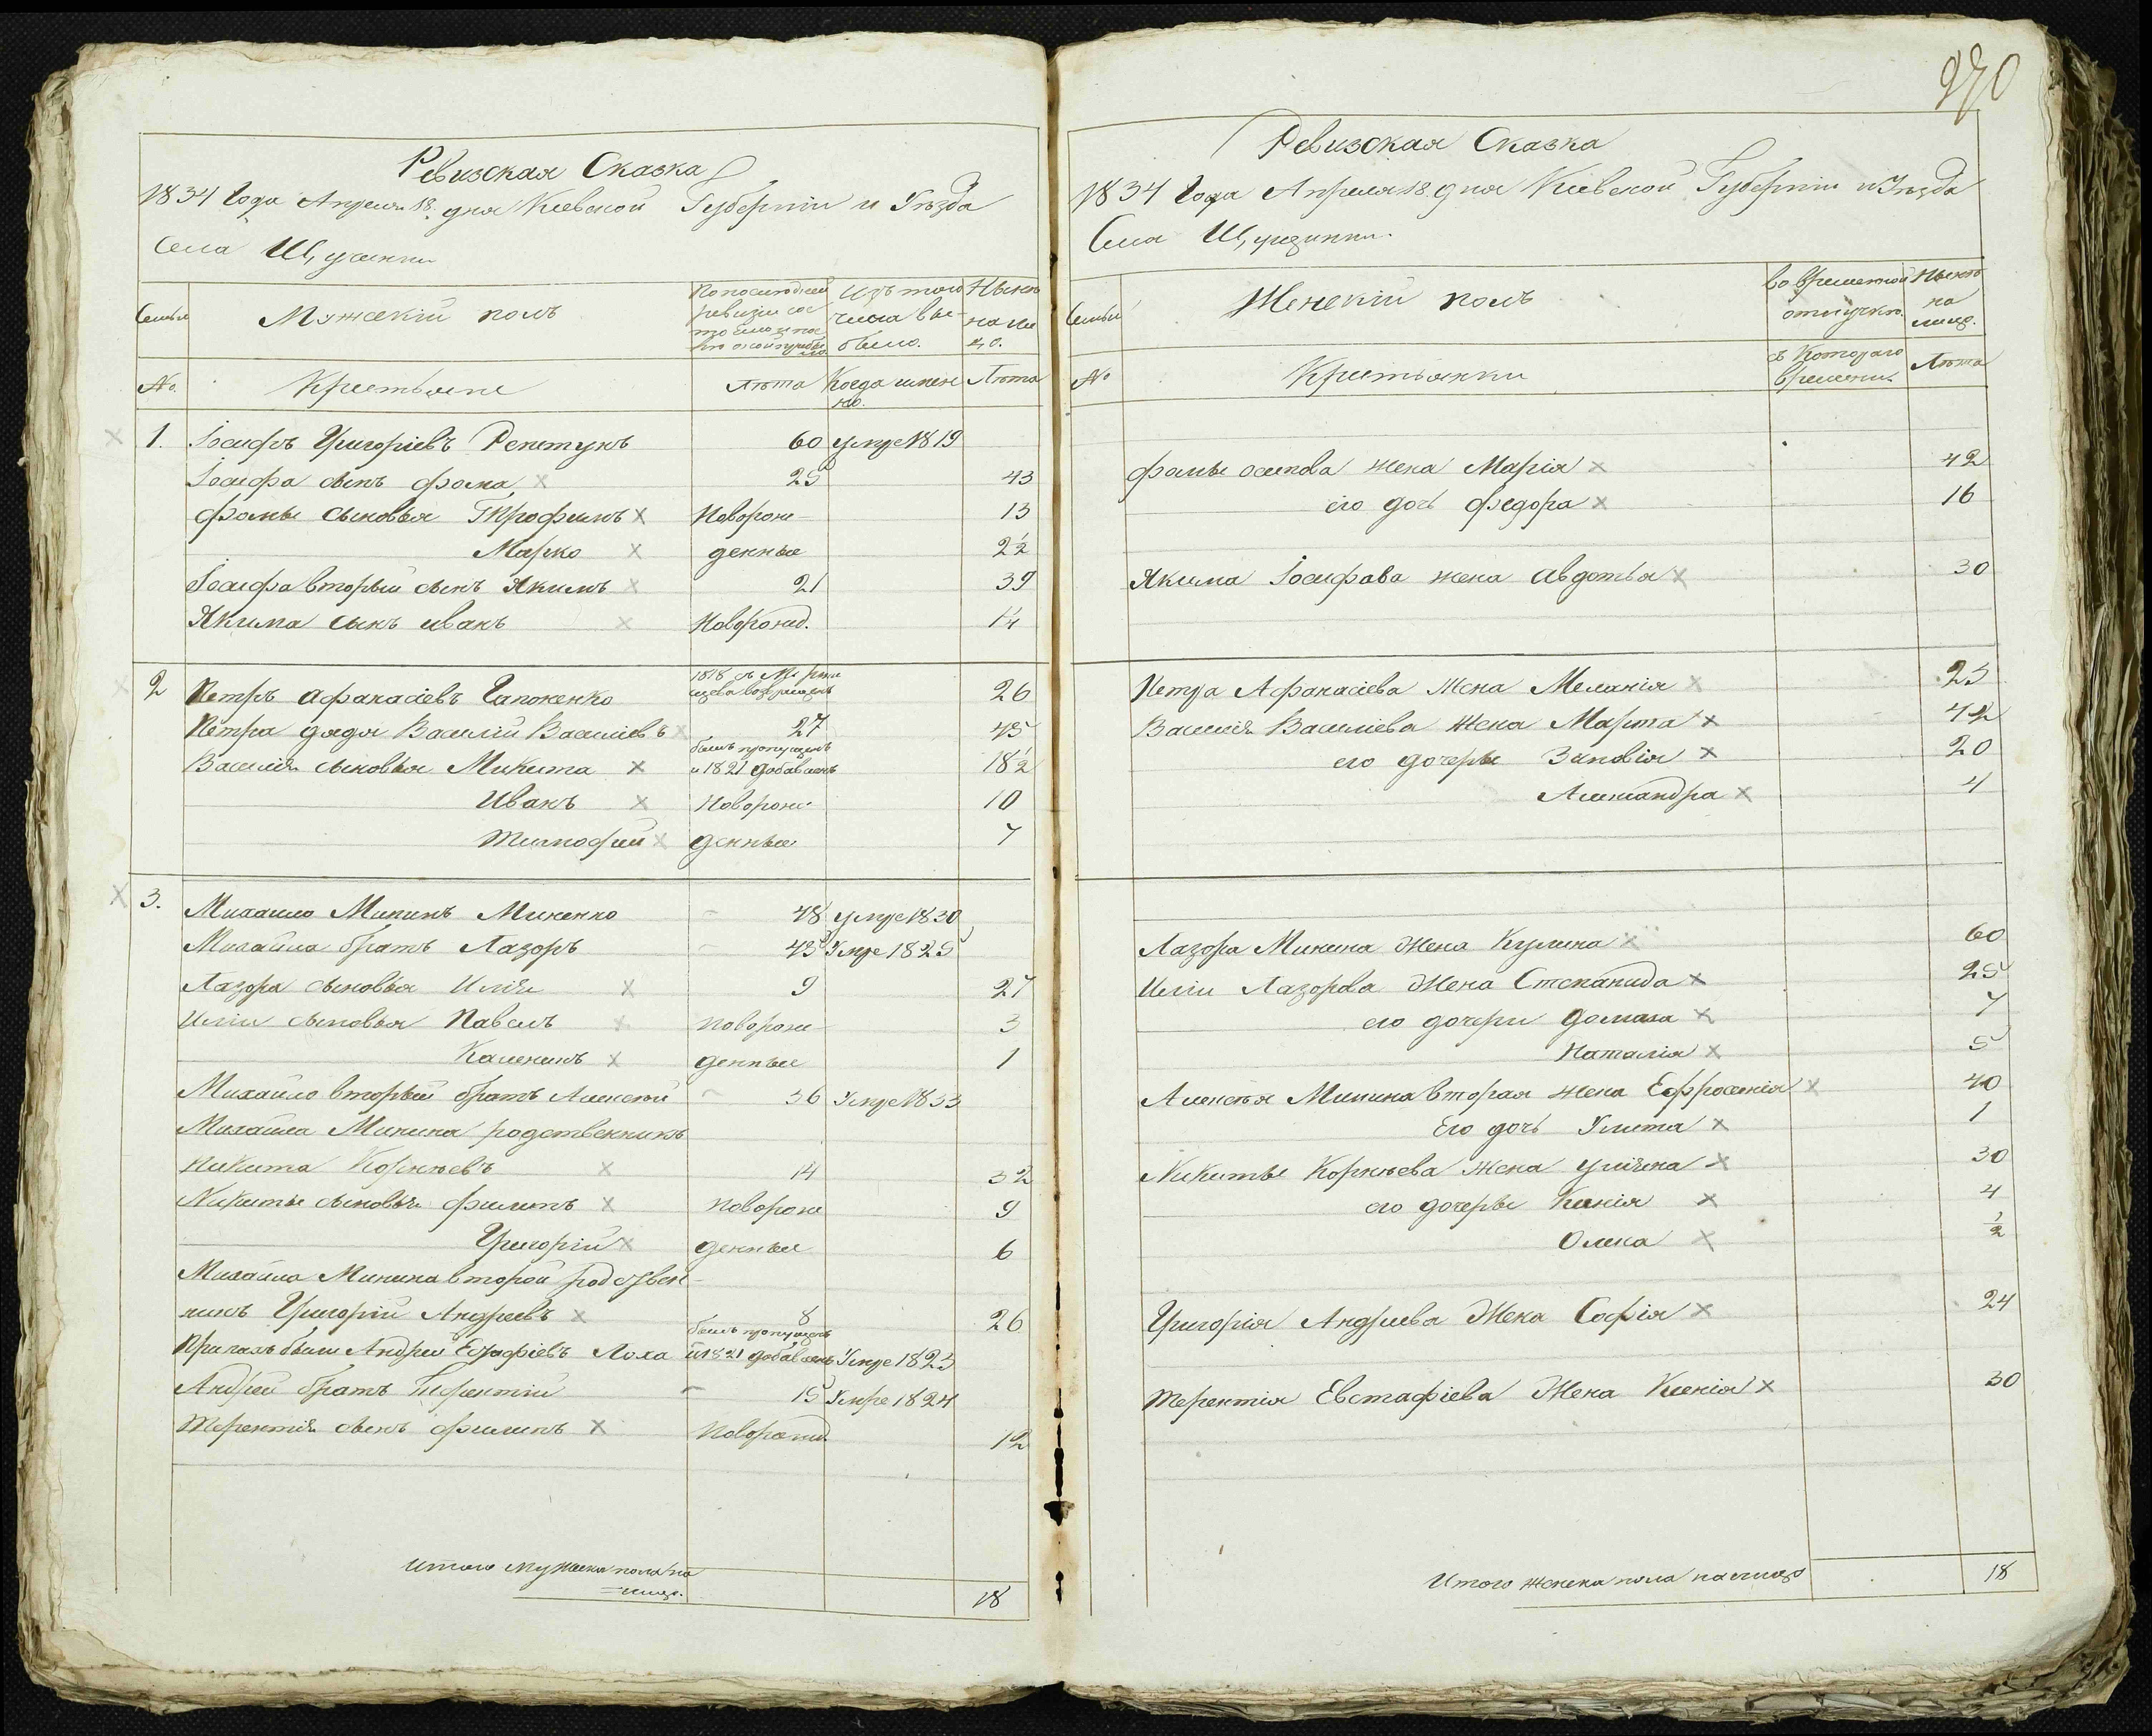 270
Ревизская Сказка
1834 Года Апреля 18. дня Кіевской Губерніи и Уѣзда
Села Щучинки
Семьи
Мужескій полъ
По последней ревизіи состояло и после оной прибыло
Изъ того числа выбыло.
Нынѣ на лицо.
№.
Крестьяне
Лѣта
Когда имянно.
Лѣта
1. Іосифъ Григоріевъ Репетунъ 60 умре 1819
Іосифа сынъ Фома 25 43
Фомы сыновья Трофимъ Новорож- 13
Марко денные 2½
Іосифа вторый сынъ Якимъ 21 39
Якима сынъ Иванъ Новорожд. 1¼
2 Петръ Афанасіевъ Гапоненко 1818 съ возвращенъ 26
Петра дядя Василій Василіевъ 27 45
Василія сыновья Микита былъ пропущенъ и 1821 добавленъ 18½
Иванъ Новорож- 10
Тимофій денные 7
3. Михайло Мининъ Миненко 48 умре 1830
Михайла братъ Лазоръ 45 Умре 1825
Лазора сыновья Илія 9 27
Иліи сыновья Павелъ новорож- 3
Каленикъ денные 1
Михайло вторый братъ Алексѣй 36 Умре 1833
Михайла Минина родственникъ
Никита Корнѣевъ 14 32
Никиты сыновья Филипъ Новорож 9
Григорій денные 6
Михайла Минина второй родствен-
никъ Григорій Андреевъ 8 26
Приказъ былъ Андрей Евстафіевъ Лоха былъ пропущенъ и 1821 добавленъ Умре 1823
Андрей братъ Терентій 15 Умре 1824
Терентія сынъ Филипъ Новорожд. 12
Итого мужеска пола на
лицо. 18
Ревизская Сказка
1834 Года Апреля 18. дня Кіевской Губерніи и Уѣзда
Села Щучинки.
Семьи
Женскій полъ
Во временной отлучкѣ.
Нынѣ на лицо.
№
Крестьянки
съ Котораго времени.
Лѣта
Фомы осипова жена Марія 42
его дочь Федора 16
Якима Іосифава жена Авдотья 30
Петра Афанасіева Жена Меланія 23
Василія Василіева жена Марта 42
его дочеры Зиновія 20
Александра 4
Лазора Минина Жена Кулина 60
Иліи Лазорова Жена Степанида 25
его дочери Домаха 7
Наталія 5
Алексѣя Минина вторая жена Ефросинія 40
Его дочь Улита 1
Никиты Корнѣева Жена Уліяна 30
его дочеры Ксенія 4
Олена ½
Григорія Андреева Жена Софія 24
Терентія Евстафіева Жена Ксенія 30
Итого женска пола на лицо 18